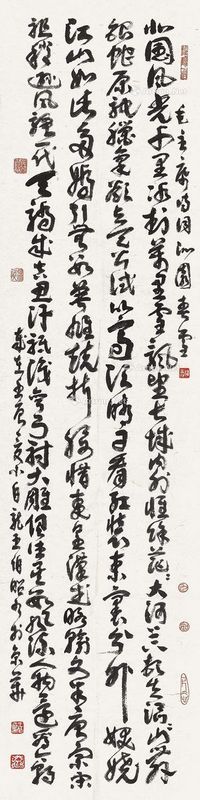 毛主席诗词沁園春雪
北國风光千里冰封萬里雪飘望长城内外惟馀茫茫大河上下顿失滔滔山舞
銀蛇原驰蠟象欲与天公试比高须晴日看红装素裹分外妖娆
江山如此多嬌引无数英雄竞折腰惜秦皇漢武略输文采唐宗宋
祖稍逊风骚一代天骄成吉思汗祗識弯弓射大雕俱往矣数风流人物还看今朝